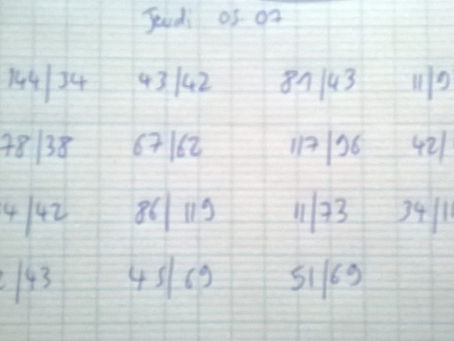 Jeudi 05 07
144/34 43/42 81/43
78/38 67/62 117/96
86/119 11/73
45/69 51/69